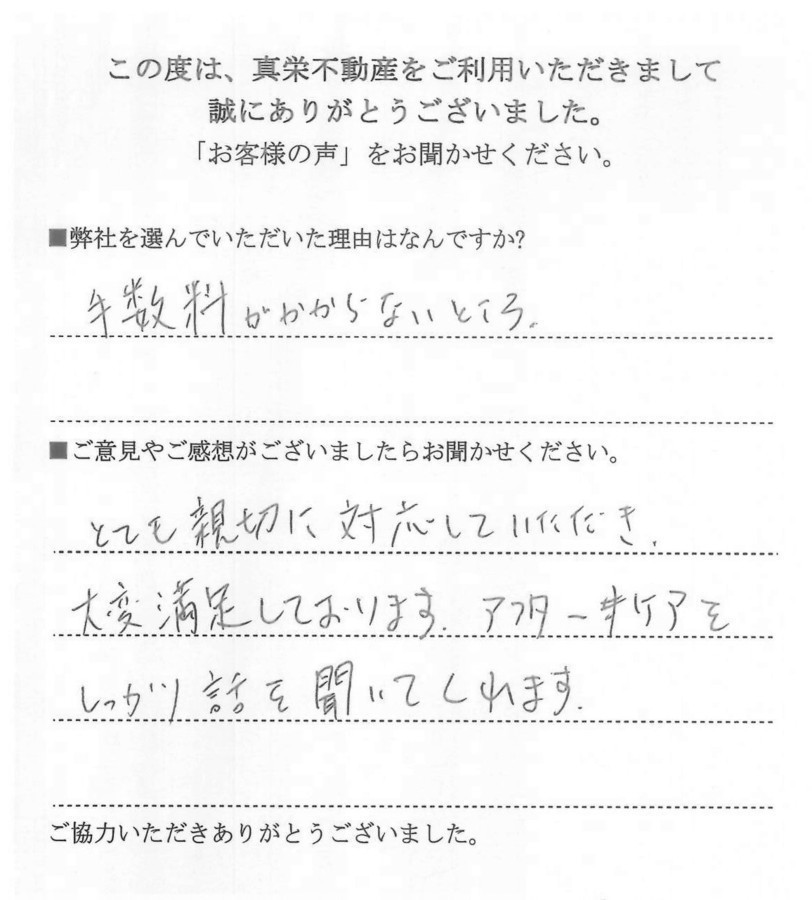 この度は、真栄不動産をご利用いただきまして
誠にありがとうございました。
「お客様の声」をお聞かせください。
■弊社を選んでいただいた理由はなんですか?
手数料がかからないところ.
■ご意見やご感想がございましたらお聞かせください。
とても親切に対応していただき.
大変満足しております. アフターケアを
しっかり話を聞いてくれます.
ご協力いただきありがとうございました。